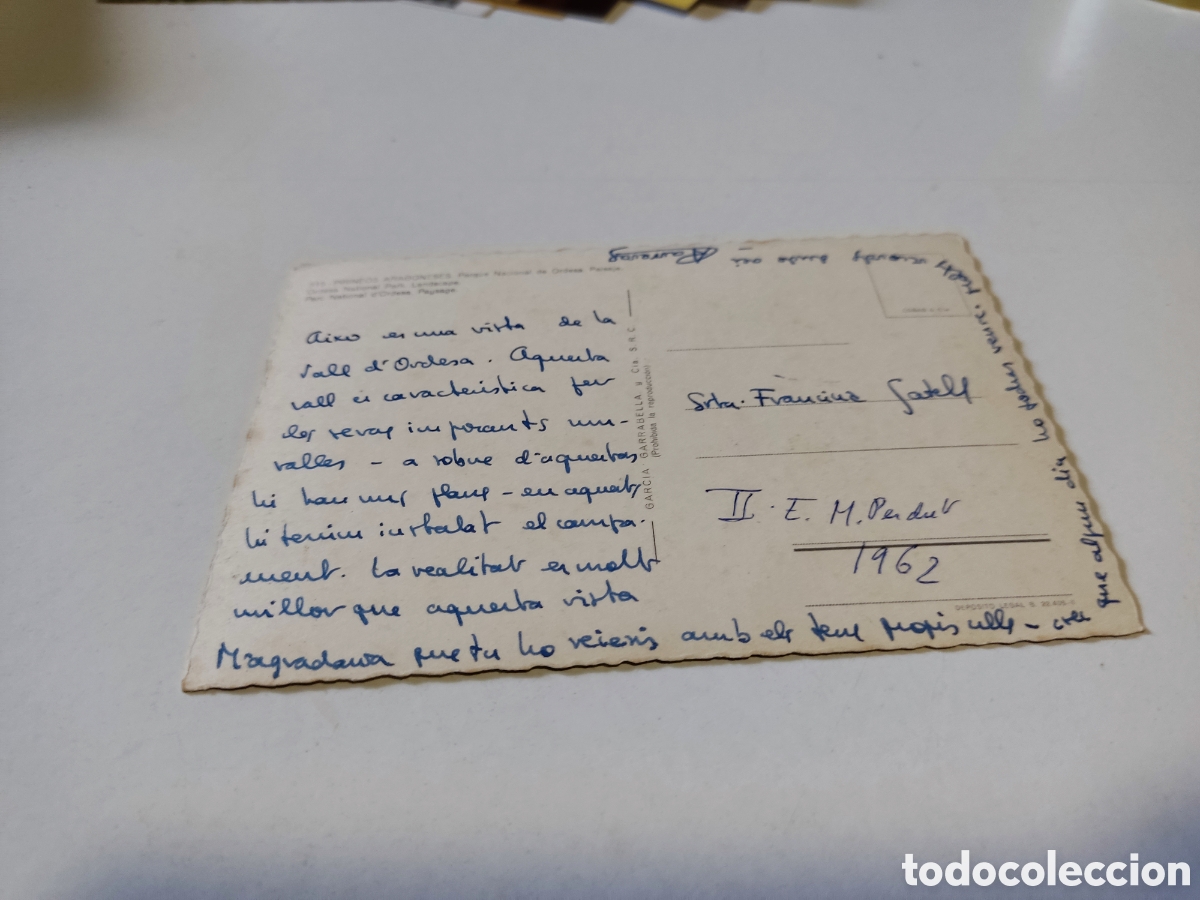 PIRINEOS ARAGONESES. Parque Nacional de Ordesa. Paisaje.
Ordesa National Park. Landscape.
Parc National d'Ordesa. Paysage.
Aixo es una vista de la
Vall d'Ordesa. Aquesta
vall és característica per
les seves imporants mu-
ralles - a sobre d'aquestas
hi han uns plans - en aquets
hi tenim instalat el campa-
ment. La realitat es molt
millor que aquesta vista
M'agradaria que tu ho veiesis amb els teus propis ulls - crec
que algun dia ho podras veure. Molts records
GARCIA GARRABELLA y Cía. S.R.C.
(Prohibida la reproducción)
Srta. Francina Gatell
II. E. M. Perdut
1962
DEPOSITO LEGAL B.
todocoleccion